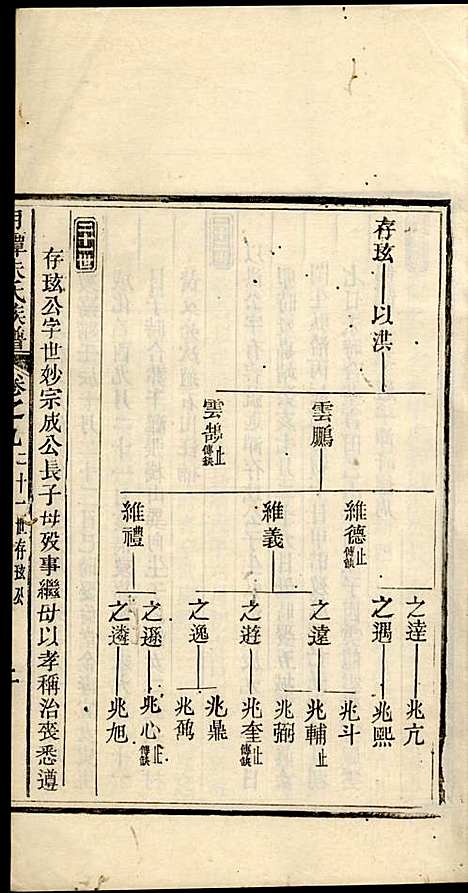 存玹 以洪
雲鵬
雲鵠 止 傳缺
維德 止 傳缺
維義
維禮
之達
之遇
之遠
之遊
之逸
之遜
之遴
兆亢
兆熙
兆斗
兆輔 止
兆弼
兆奎 止 傳缺
兆鼎
兆鵉
兆心 止 傳缺
兆旭
二十一世
存玹公字世妙宗成公長子母歿事繼母以孝稱治喪悉遵
月潭朱氏族譜 卷之九 二十一世存玹公 一